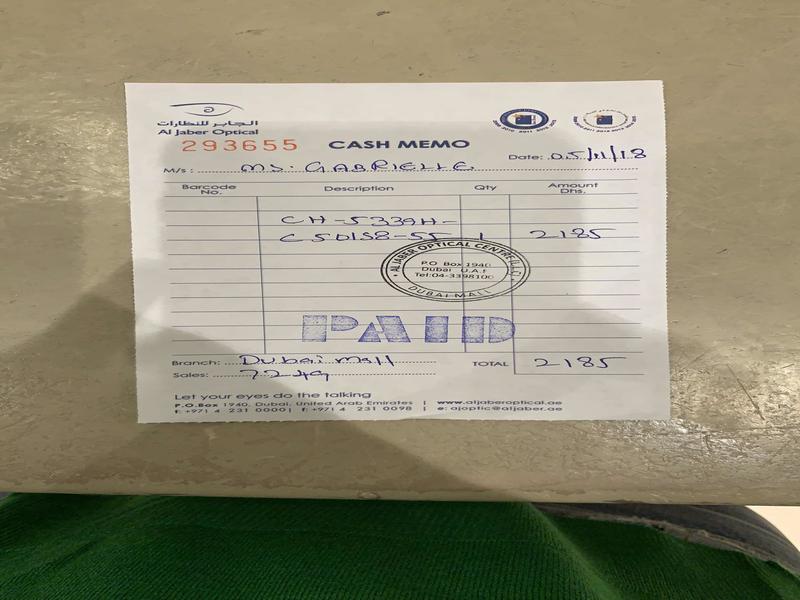 الجابر للنظارات
Al Jaber Optical
293655
CASH MEMO
Date: 05/11/18
M/s: MS. GABRIELLE
Barcode No.
Description
Qty
Amount Dhs.
CH-5339H-
C501S8-55 1 2185
AL JABER OPTICAL CENTRE (L.L.C)
P.O Box 1940
Dubai U.A.E
Tel:04-3398100
DUBAI MALL
PAID
Branch: Dubai Mall
TOTAL 2185
Sales: 7249
Let your eyes do the talking
P.O.Box 1940, Dubai, United Arab Emirates | www.aljaberoptical.ae
t: +971 4 231 0000 | f: +971 4 231 0098 | e: ajoptic@aljaber.ae